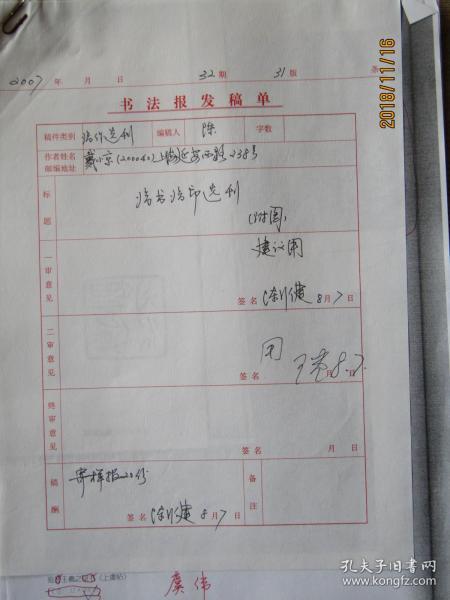 2018/11/16
2007年 月 日 32期 31版 条
书法报发稿单
稿件类别 临作选刊 编稿人 陈 字数
作者姓名
邮编地址 戴小京(200040)上海延安西路238号
标题 临书临印选刊
(附图)
一审意见 建议用
签名 8月7日
二审意见 同
签名 8.7.
月 日
终审意见
签名 月 日
稿酬 寄样报20份 备注
签名 8月7日
王羲之 (上虞帖)
虞伟
孔夫子旧书网